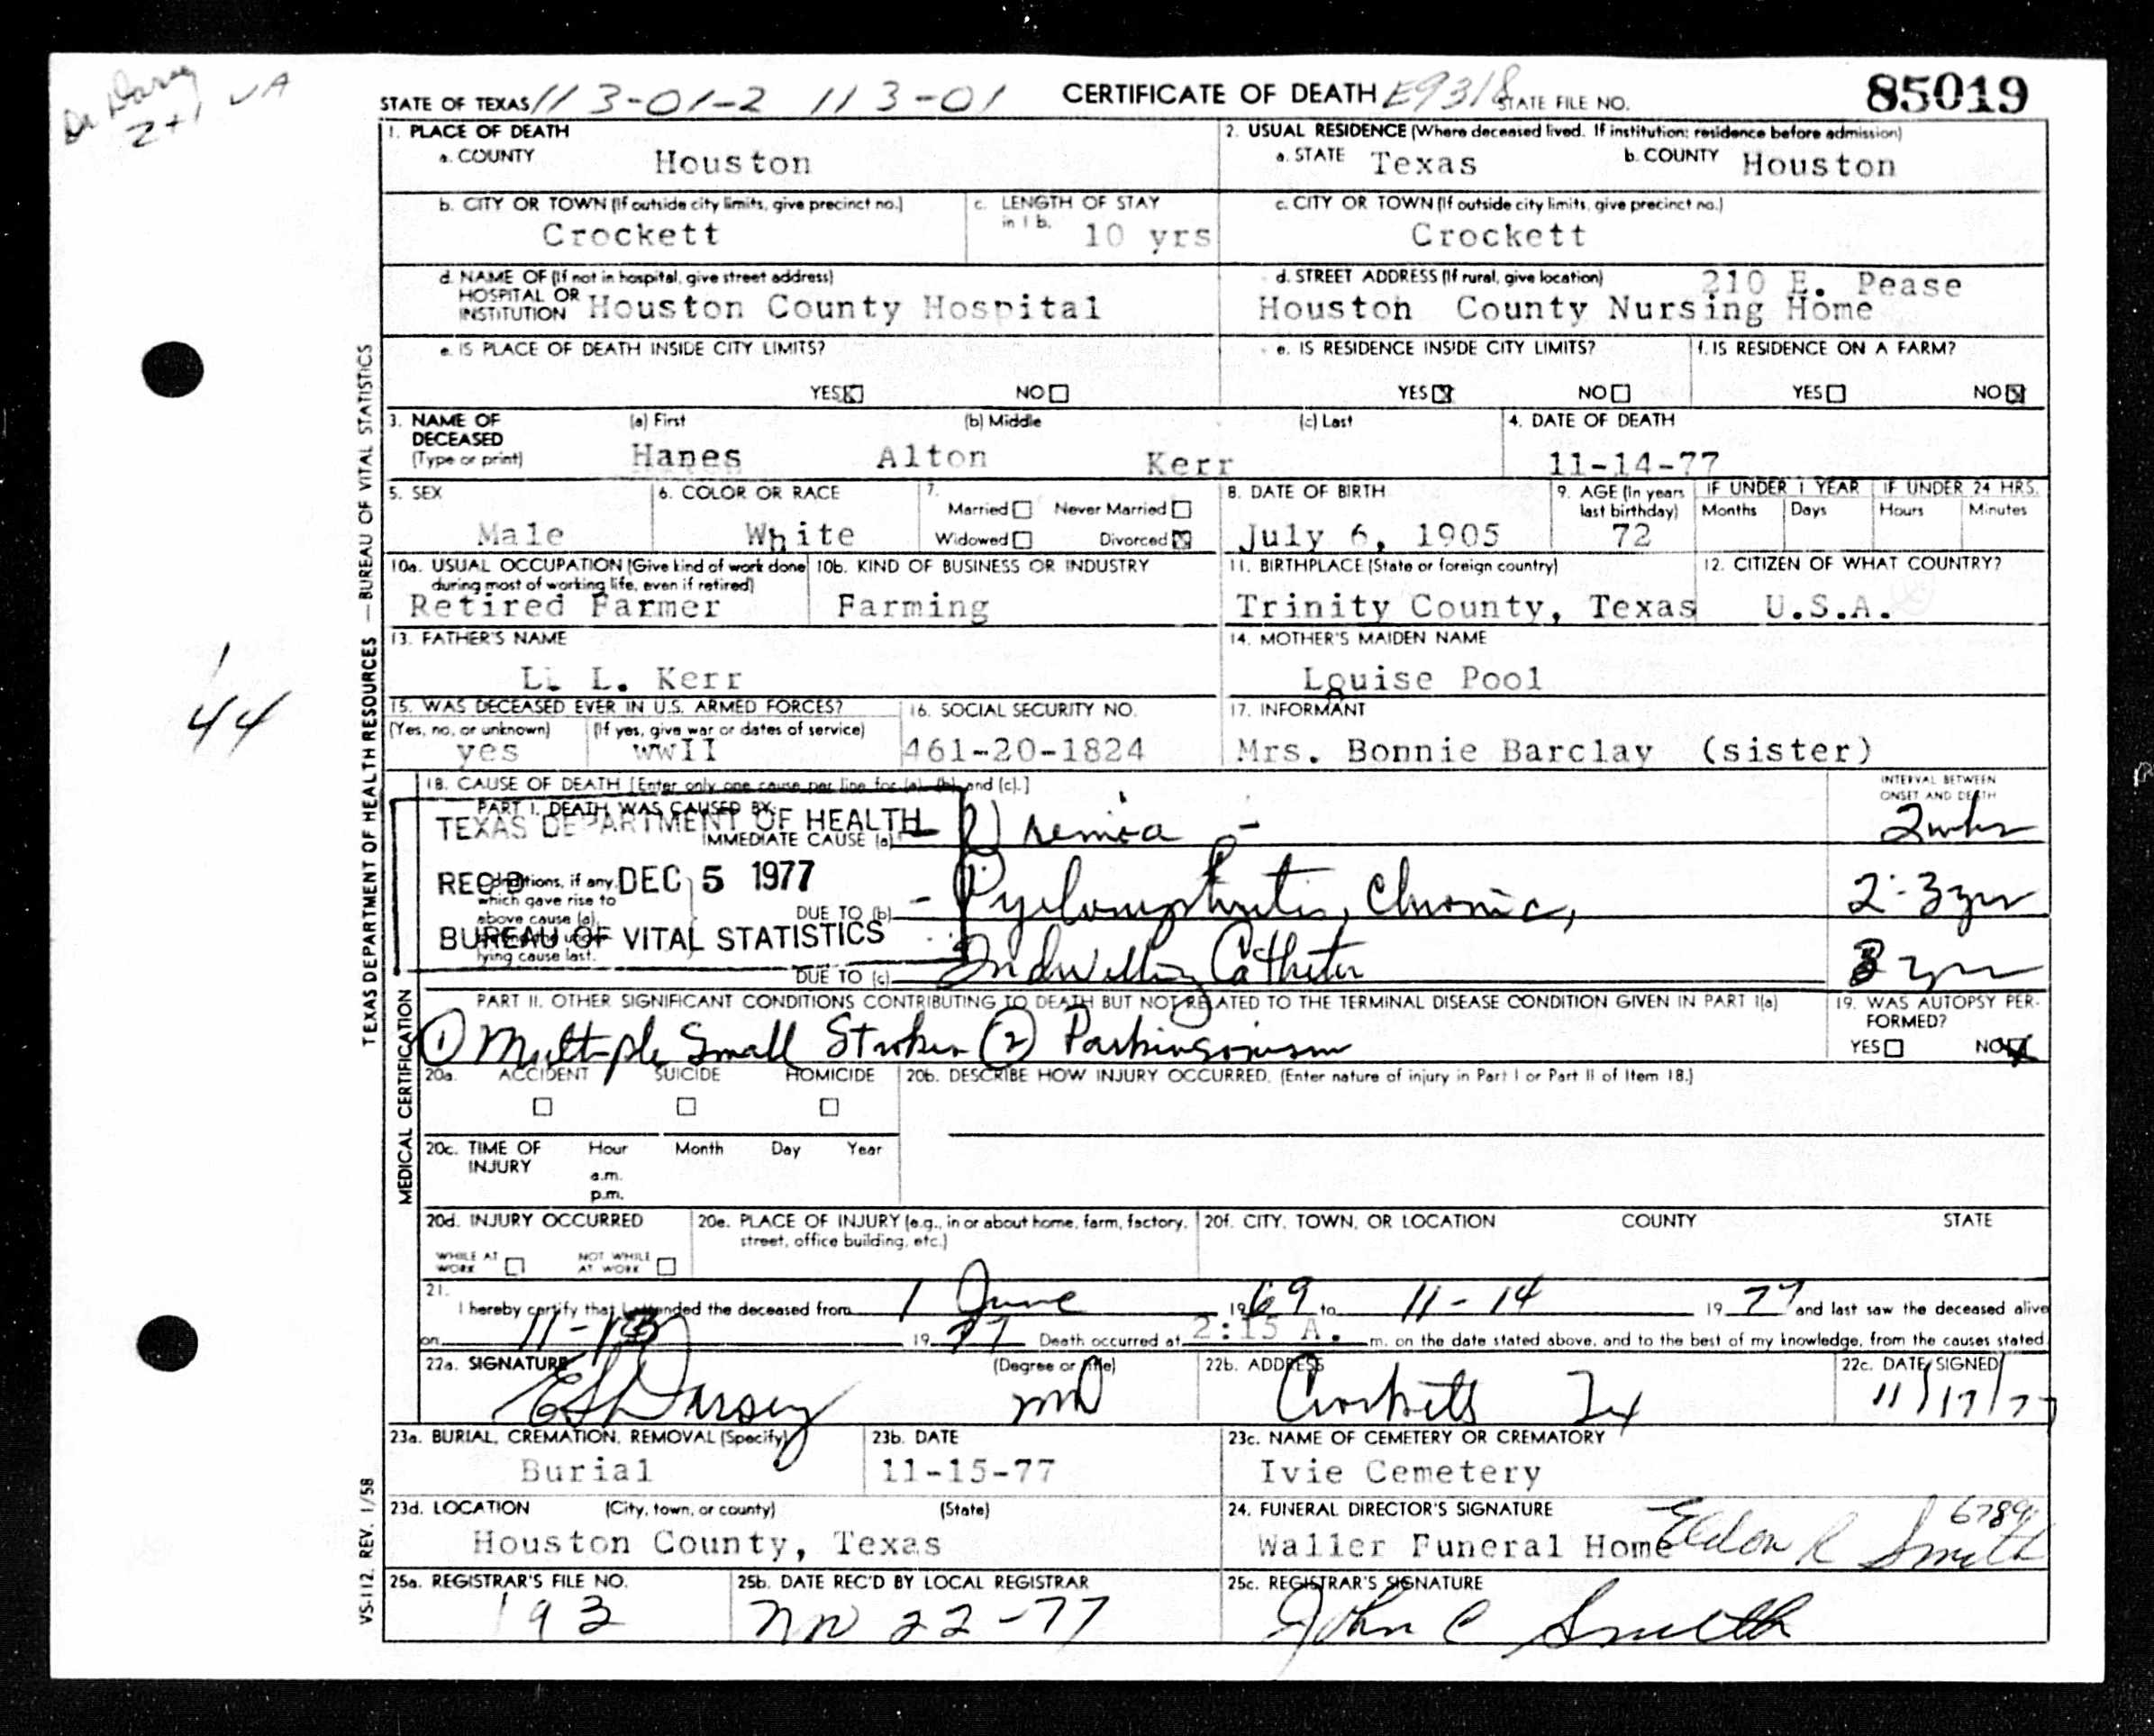 Dr Darsey
2+1 VA
STATE OF TEXAS 113-01-2 113-01 CERTIFICATE OF DEATH E9318 STATE FILE NO. 85019
1. PLACE OF DEATH
a. COUNTY Houston
2. USUAL RESIDENCE (Where deceased lived. If institution: residence before admission)
a. STATE Texas b. COUNTY Houston
b. CITY OR TOWN (If outside city limits, give precinct no.)
Crockett
c. LENGTH OF STAY in 1 b. 10 yrs
c. CITY OR TOWN (If outside city limits, give precinct no.)
Crockett
d. NAME OF (If not in hospital, give street address)
HOSPITAL OR
INSTITUTION Houston County Hospital
d. STREET ADDRESS (If rural, give location) 210 E. Pease
Houston County Nursing Home
e. IS PLACE OF DEATH INSIDE CITY LIMITS?
YES NO
e. IS RESIDENCE INSIDE CITY LIMITS?
YES NO
f. IS RESIDENCE ON A FARM?
YES NO
3. NAME OF DECEASED (Type or print)
(a) First (b) Middle (c) Last
Hanes Alton Kerr
4. DATE OF DEATH
11-14-77
5. SEX
Male
6. COLOR OR RACE
White
7.
Married Never Married
Widowed Divorced
8. DATE OF BIRTH
July 6, 1905
9. AGE (In years last birthday)
72
IF UNDER 1 YEAR
Months Days
IF UNDER 24 HRS.
Hours Minutes
10a. USUAL OCCUPATION (Give kind of work done during most of working life, even if retired)
Retired Farmer
10b. KIND OF BUSINESS OR INDUSTRY
Farming
11. BIRTHPLACE (State or foreign country)
Trinity County, Texas
12. CITIZEN OF WHAT COUNTRY?
U.S.A.
13. FATHER'S NAME
L. Kerr
14. MOTHER'S MAIDEN NAME
Louise Pool
15. WAS DECEASED EVER IN U.S. ARMED FORCES?
(Yes, no, or unknown) (If yes, give war or dates of service)
yes WWII
16. SOCIAL SECURITY NO.
461-20-1824
17. INFORMANT
Mrs. Bonnie Barclay (sister)
18. CAUSE OF DEATH [Enter only one cause per line for (a), (b), and (c).]
INTERVAL BETWEEN ONSET AND DEATH
PART I. DEATH WAS CAUSED BY:
IMMEDIATE CAUSE (a) Uremia - 2 wks
Conditions, if any, which gave rise to above cause (a),
lying cause last.
DUE TO (b) - Pyelonephritis, Chronic, 2-3 yrs
DUE TO (c) Indwelling Catheter 3 yrs
TEXAS DEPARTMENT OF HEALTH
REC'D DEC 5 1977
BUREAU OF VITAL STATISTICS
PART II. OTHER SIGNIFICANT CONDITIONS CONTRIBUTING TO DEATH BUT NOT RELATED TO THE TERMINAL DISEASE CONDITION GIVEN IN PART I(a)
① Multiple Small Strokes ② Parkinsonism
19. WAS AUTOPSY PERFORMED?
YES NO
20a. ACCIDENT SUICIDE HOMICIDE
20b. DESCRIBE HOW INJURY OCCURRED. (Enter nature of injury in Part I or Part II of Item 18.)
20c. TIME OF INJURY
Hour Month Day Year
a.m.
p.m.
20d. INJURY OCCURRED
WHILE AT WORK NOT WHILE AT WORK
20e. PLACE OF INJURY (e.g., in or about home, farm, factory, street, office building, etc.)
20f. CITY, TOWN, OR LOCATION COUNTY STATE
21.
I hereby certify that I attended the deceased from 1 June 1969 to 11-14 1977 and last saw the deceased alive
on 11-13 1977 Death occurred at 2:15 A. m. on the date stated above, and to the best of my knowledge, from the causes stated.
22a. SIGNATURE (Degree or title)
E S Darsey MD
22b. ADDRESS
Crockett Tx
22c. DATE SIGNED
11/17/77
23a. BURIAL, CREMATION, REMOVAL (Specify)
Burial
23b. DATE
11-15-77
23c. NAME OF CEMETERY OR CREMATORY
Ivie Cemetery
23d. LOCATION (City, town, or county) (State)
Houston County, Texas
24. FUNERAL DIRECTOR'S SIGNATURE
Waller Funeral Home Eldon R Smith 6789
25a. REGISTRAR'S FILE NO.
193
25b. DATE REC'D BY LOCAL REGISTRAR
Nov 22-77
25c. REGISTRAR'S SIGNATURE
John C Smith
TEXAS DEPARTMENT OF HEALTH RESOURCES — BUREAU OF VITAL STATISTICS
MEDICAL CERTIFICATION
VS-112. REV. 1/58
1
44